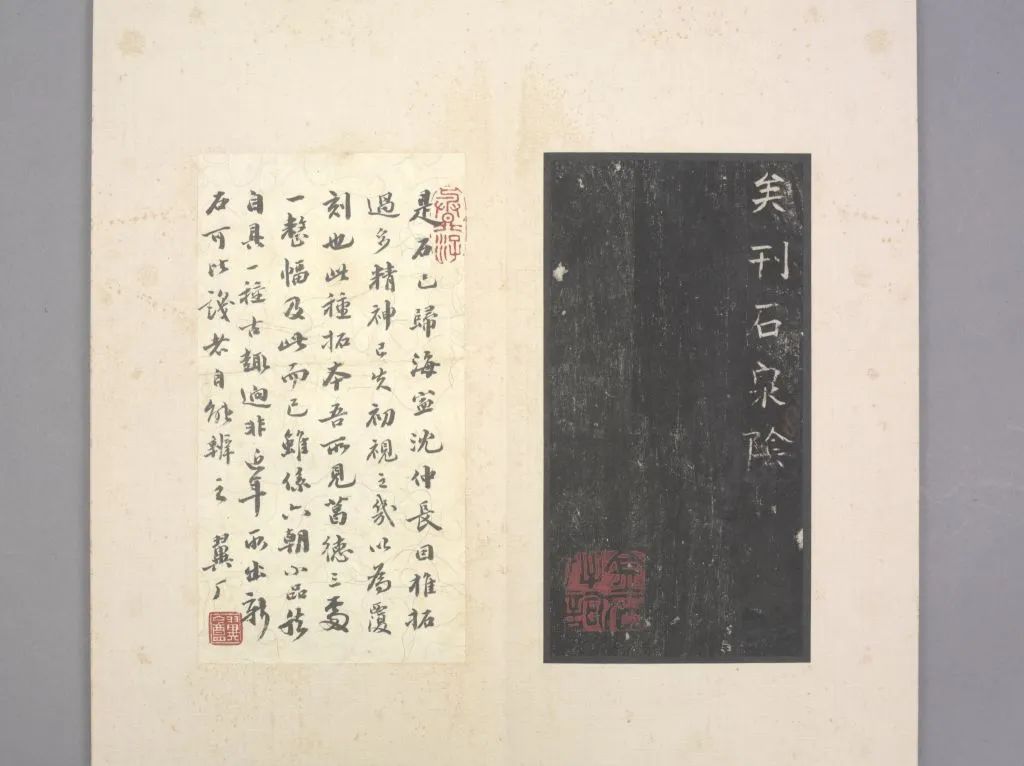 矣刊石泉陰
是石已歸海寧沈仲長因椎拓
過多精神已失初視之幾以為覆
刻也此種拓本吾所見葛德三處
一整幅及此而已雖係六朝小品然
自具一種古趣迥非近年所出新
石可比識者自能辨之 翼厂
翼盦